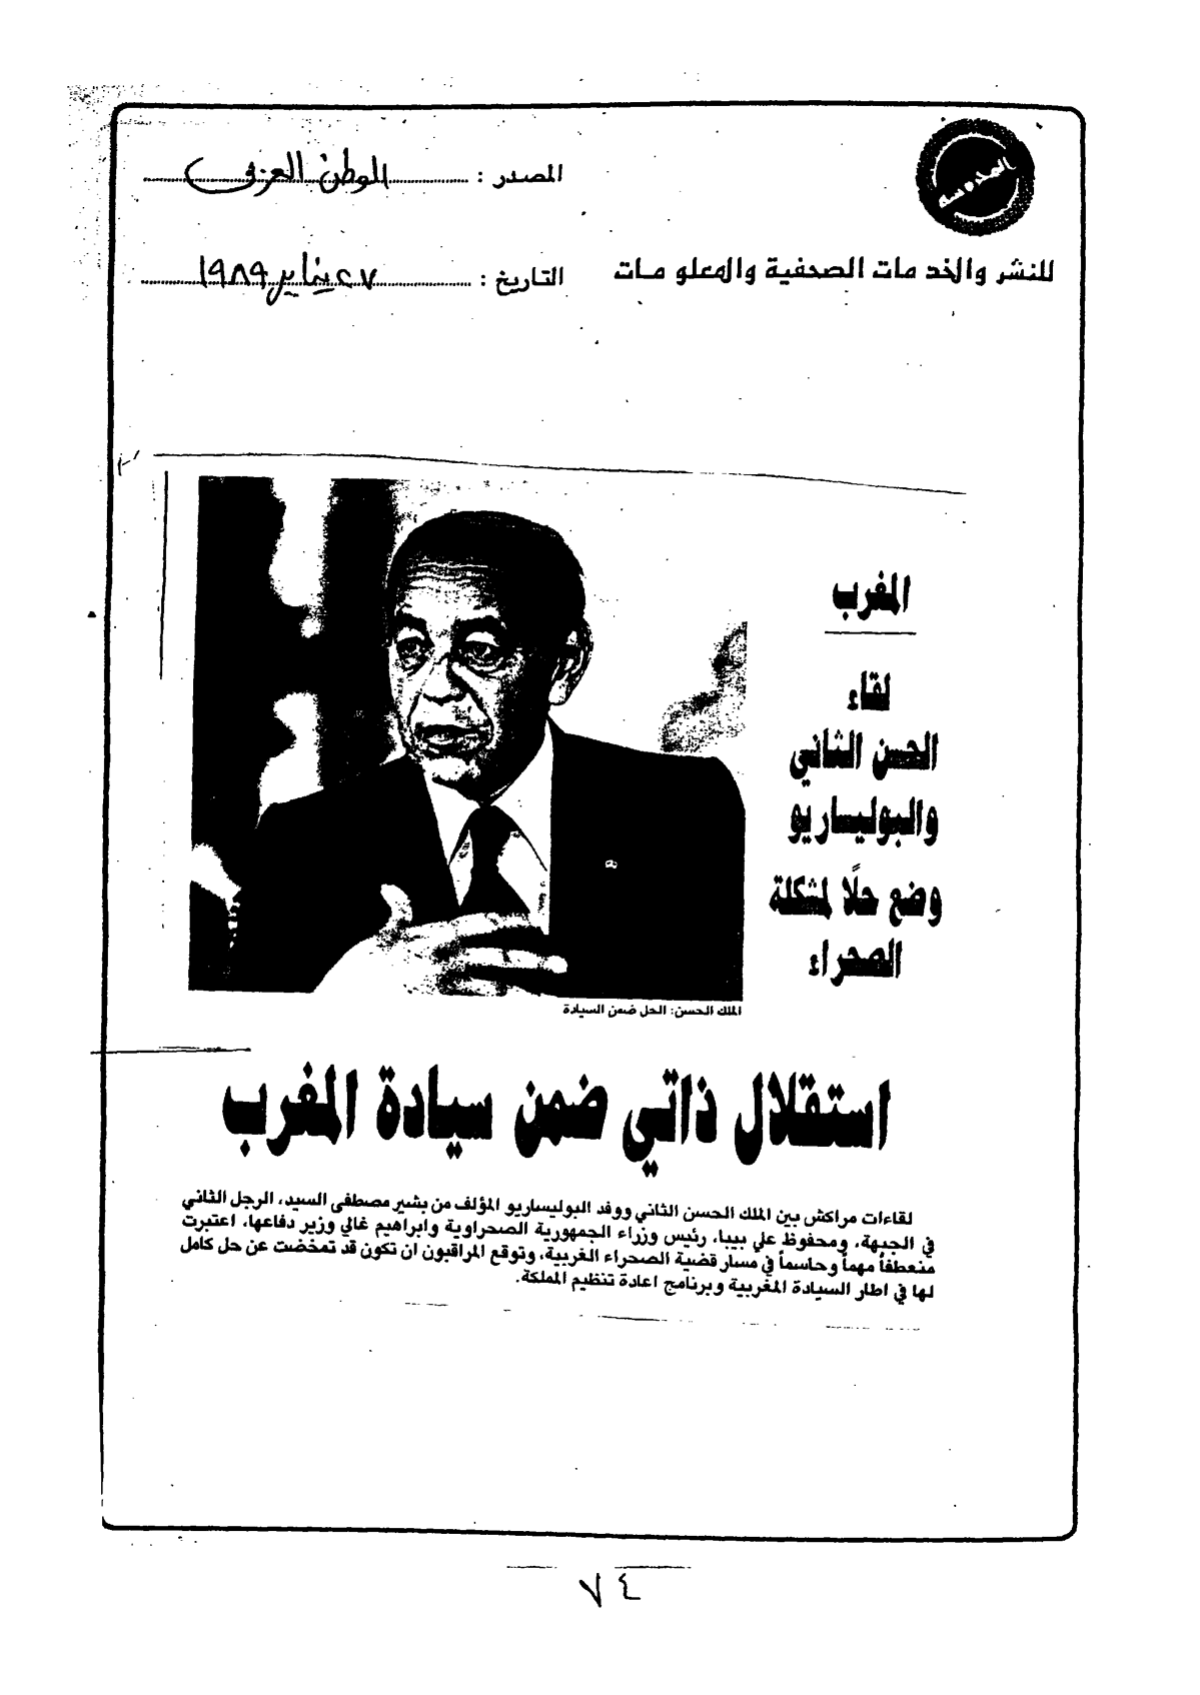 المصدر : الوطن العربي
للنشر والخدمات الصحفية والمعلومات
التاريخ : ٢٧ يناير ١٩٨٩
المغرب
لقاء
الحسن الثاني
والبوليساريو
وضع حلًا لمشكلة
الصحراء
الملك الحسن: الحل ضمن السيادة
استقلال ذاتي ضمن سيادة المغرب
لقاءات مراكش بين الملك الحسن الثاني ووفد البوليساريو المؤلف من بشير مصطفى السيد، الرجل الثاني
في الجبهة، ومحفوظ علي بيبا، رئيس وزراء الجمهورية الصحراوية وابراهيم غالي وزير دفاعها، اعتبرت
منعطفاً مهماً وحاسماً في مسار قضية الصحراء الغربية، وتوقع المراقبون ان تكون قد تمخضت عن حل كامل
لها في اطار السيادة المغربية وبرنامج اعادة تنظيم المملكة.
٧٤